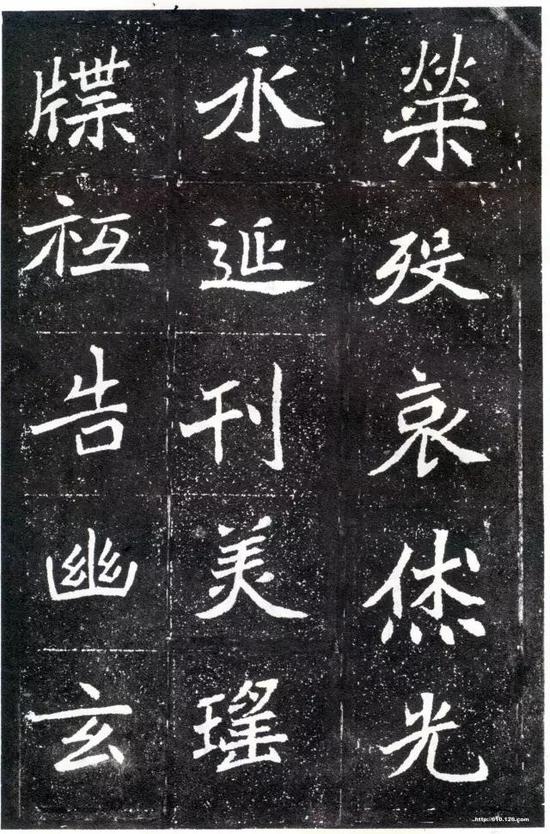 榮歿哀烋光
永延刊美瑤
牒衹告幽玄
..http://610.126.com